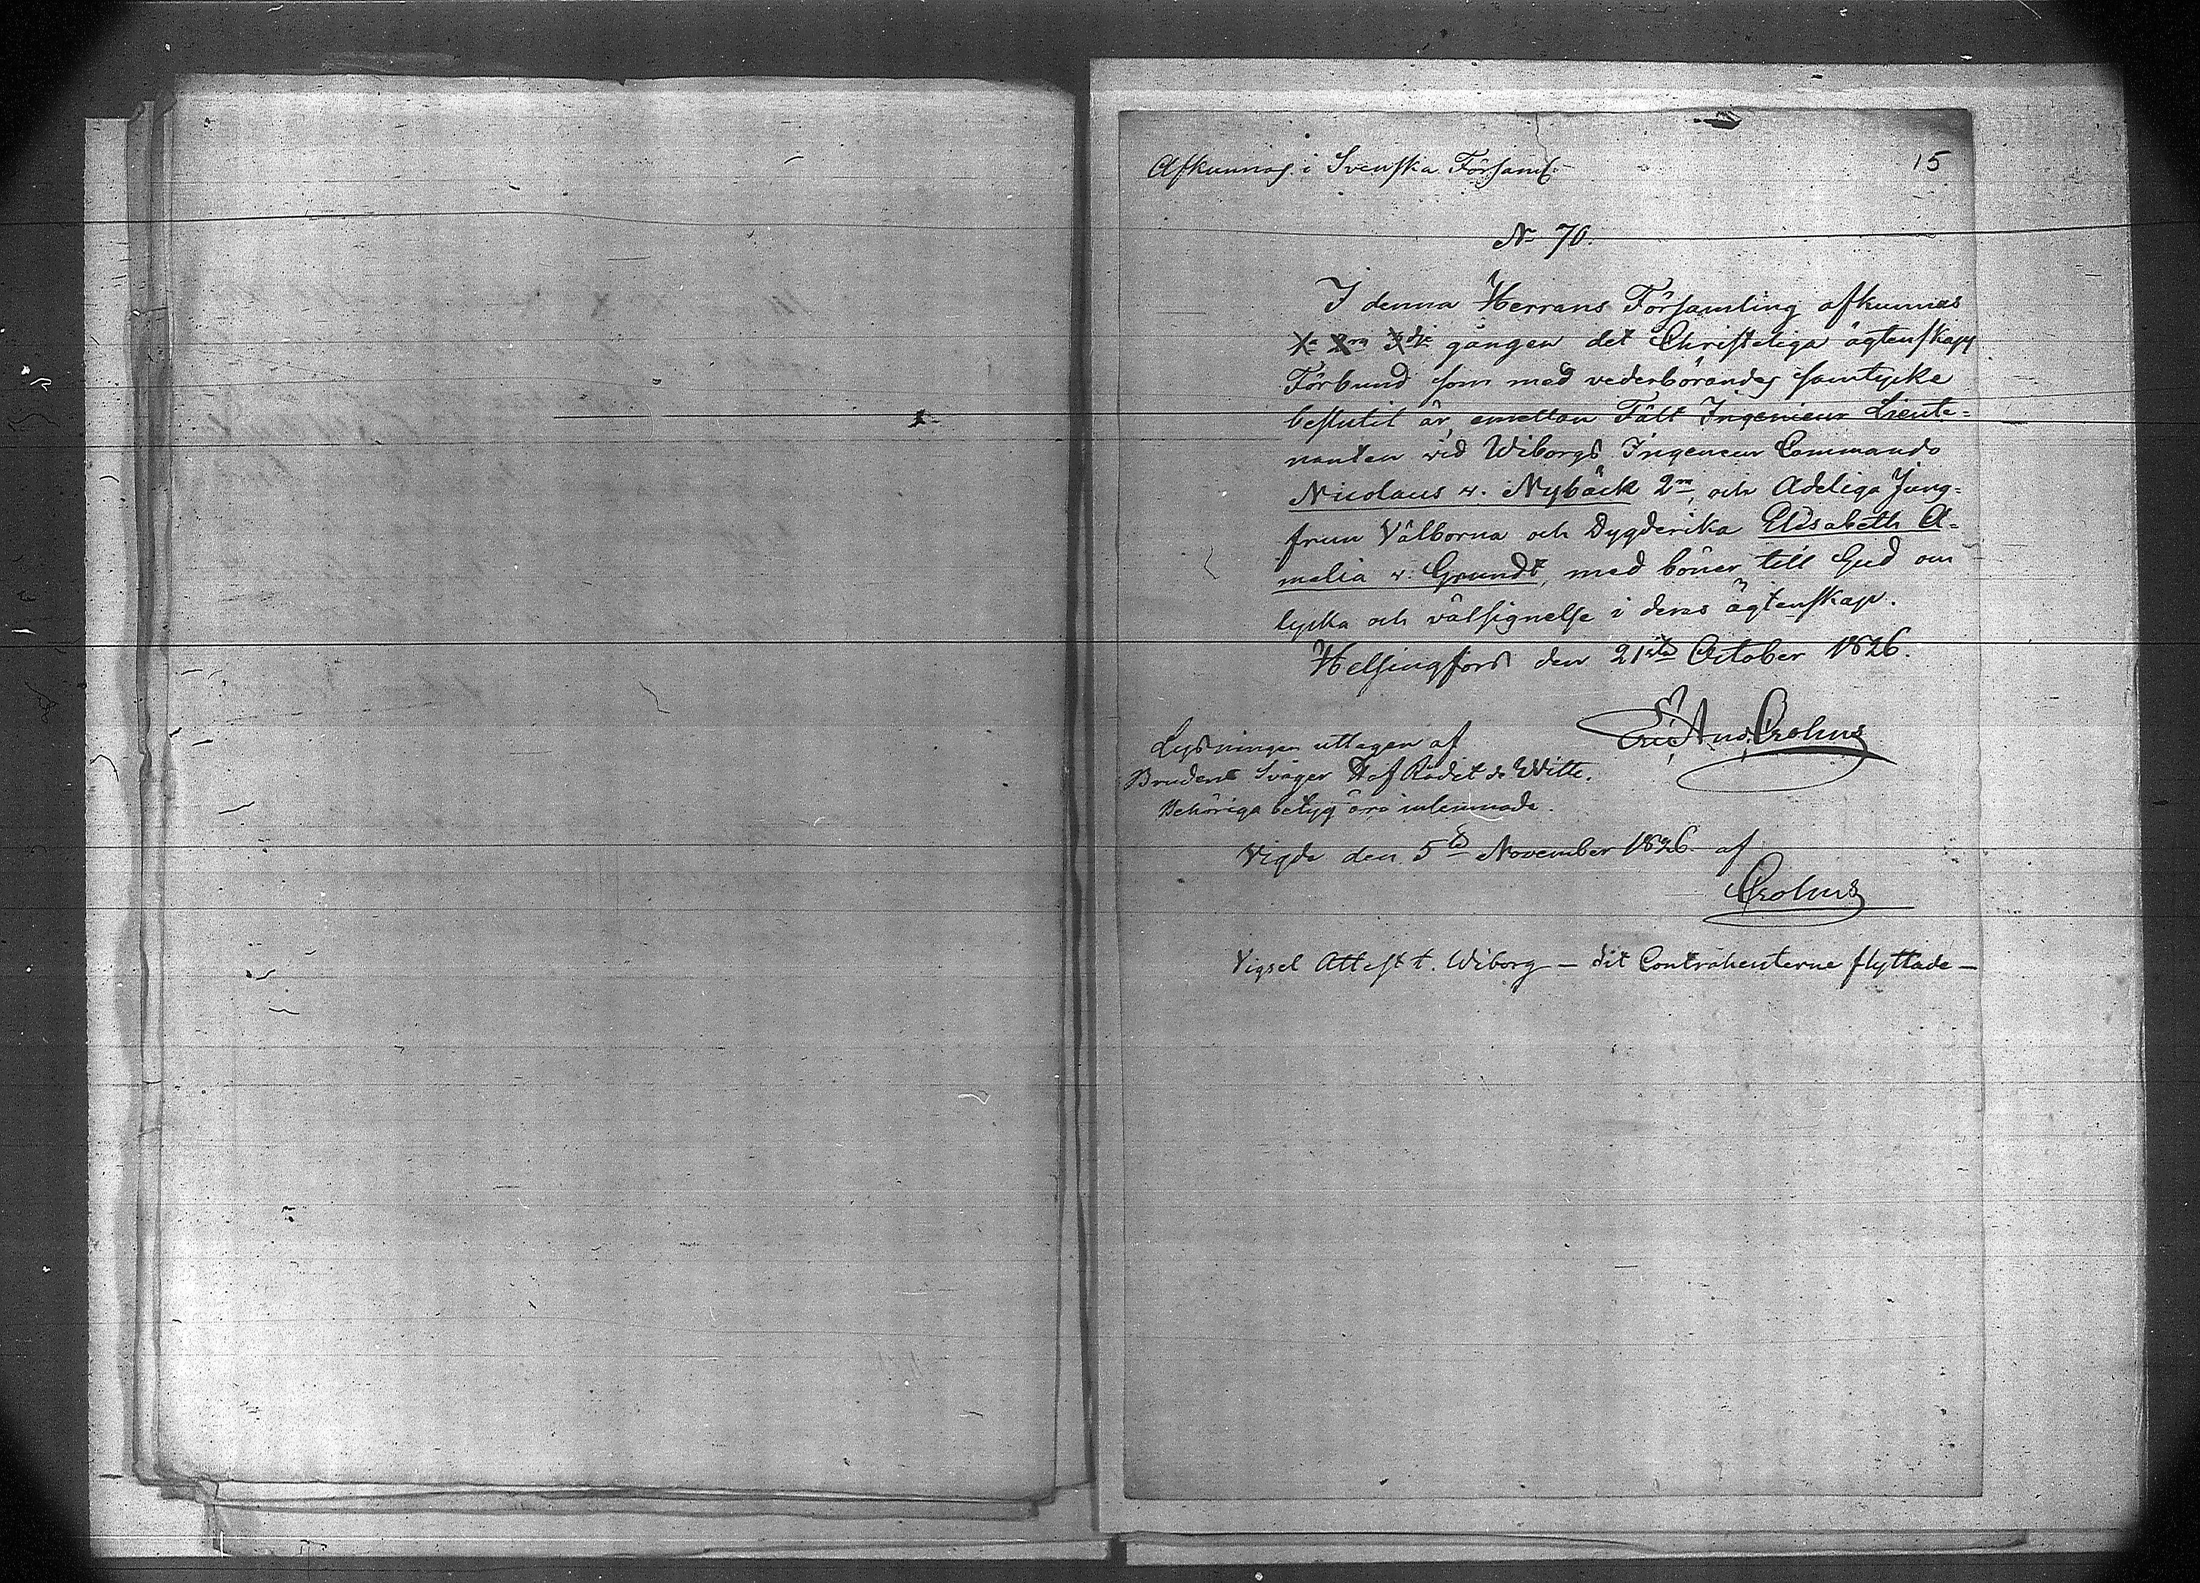 Afkunnas i Svenska Församl:
15
No 70.
I denna Herrans Församling afkunnas
1a 2ra 3dje gången det Christeliga ägtenskaps
Förbund som med vederbörandes samtycke
beslutit är, emellan Fält Ingenieur Lieute=
nanten vid Wiborgs Ingeneur Commando
Nicolaus v. Nybäck 2ra, och Adeliga Jung=
frun Välborna och Dygderika Elisabeth A=
malia v. Grundt, med böner till Gud om
lycka och välsignelse i deras ägtenskap.
Helsingfors den 21sta October 1826.
Eric And. Crohns
Lysningen uttagen af
Brudens Svåger Hof Rådet de Witte.
Behöriga betyg äro inlemnade.
Vigde den 5te November 1826 af
Crohns
Vigsel Attest t. Wiborg — dit Contrahenterne flyttade —